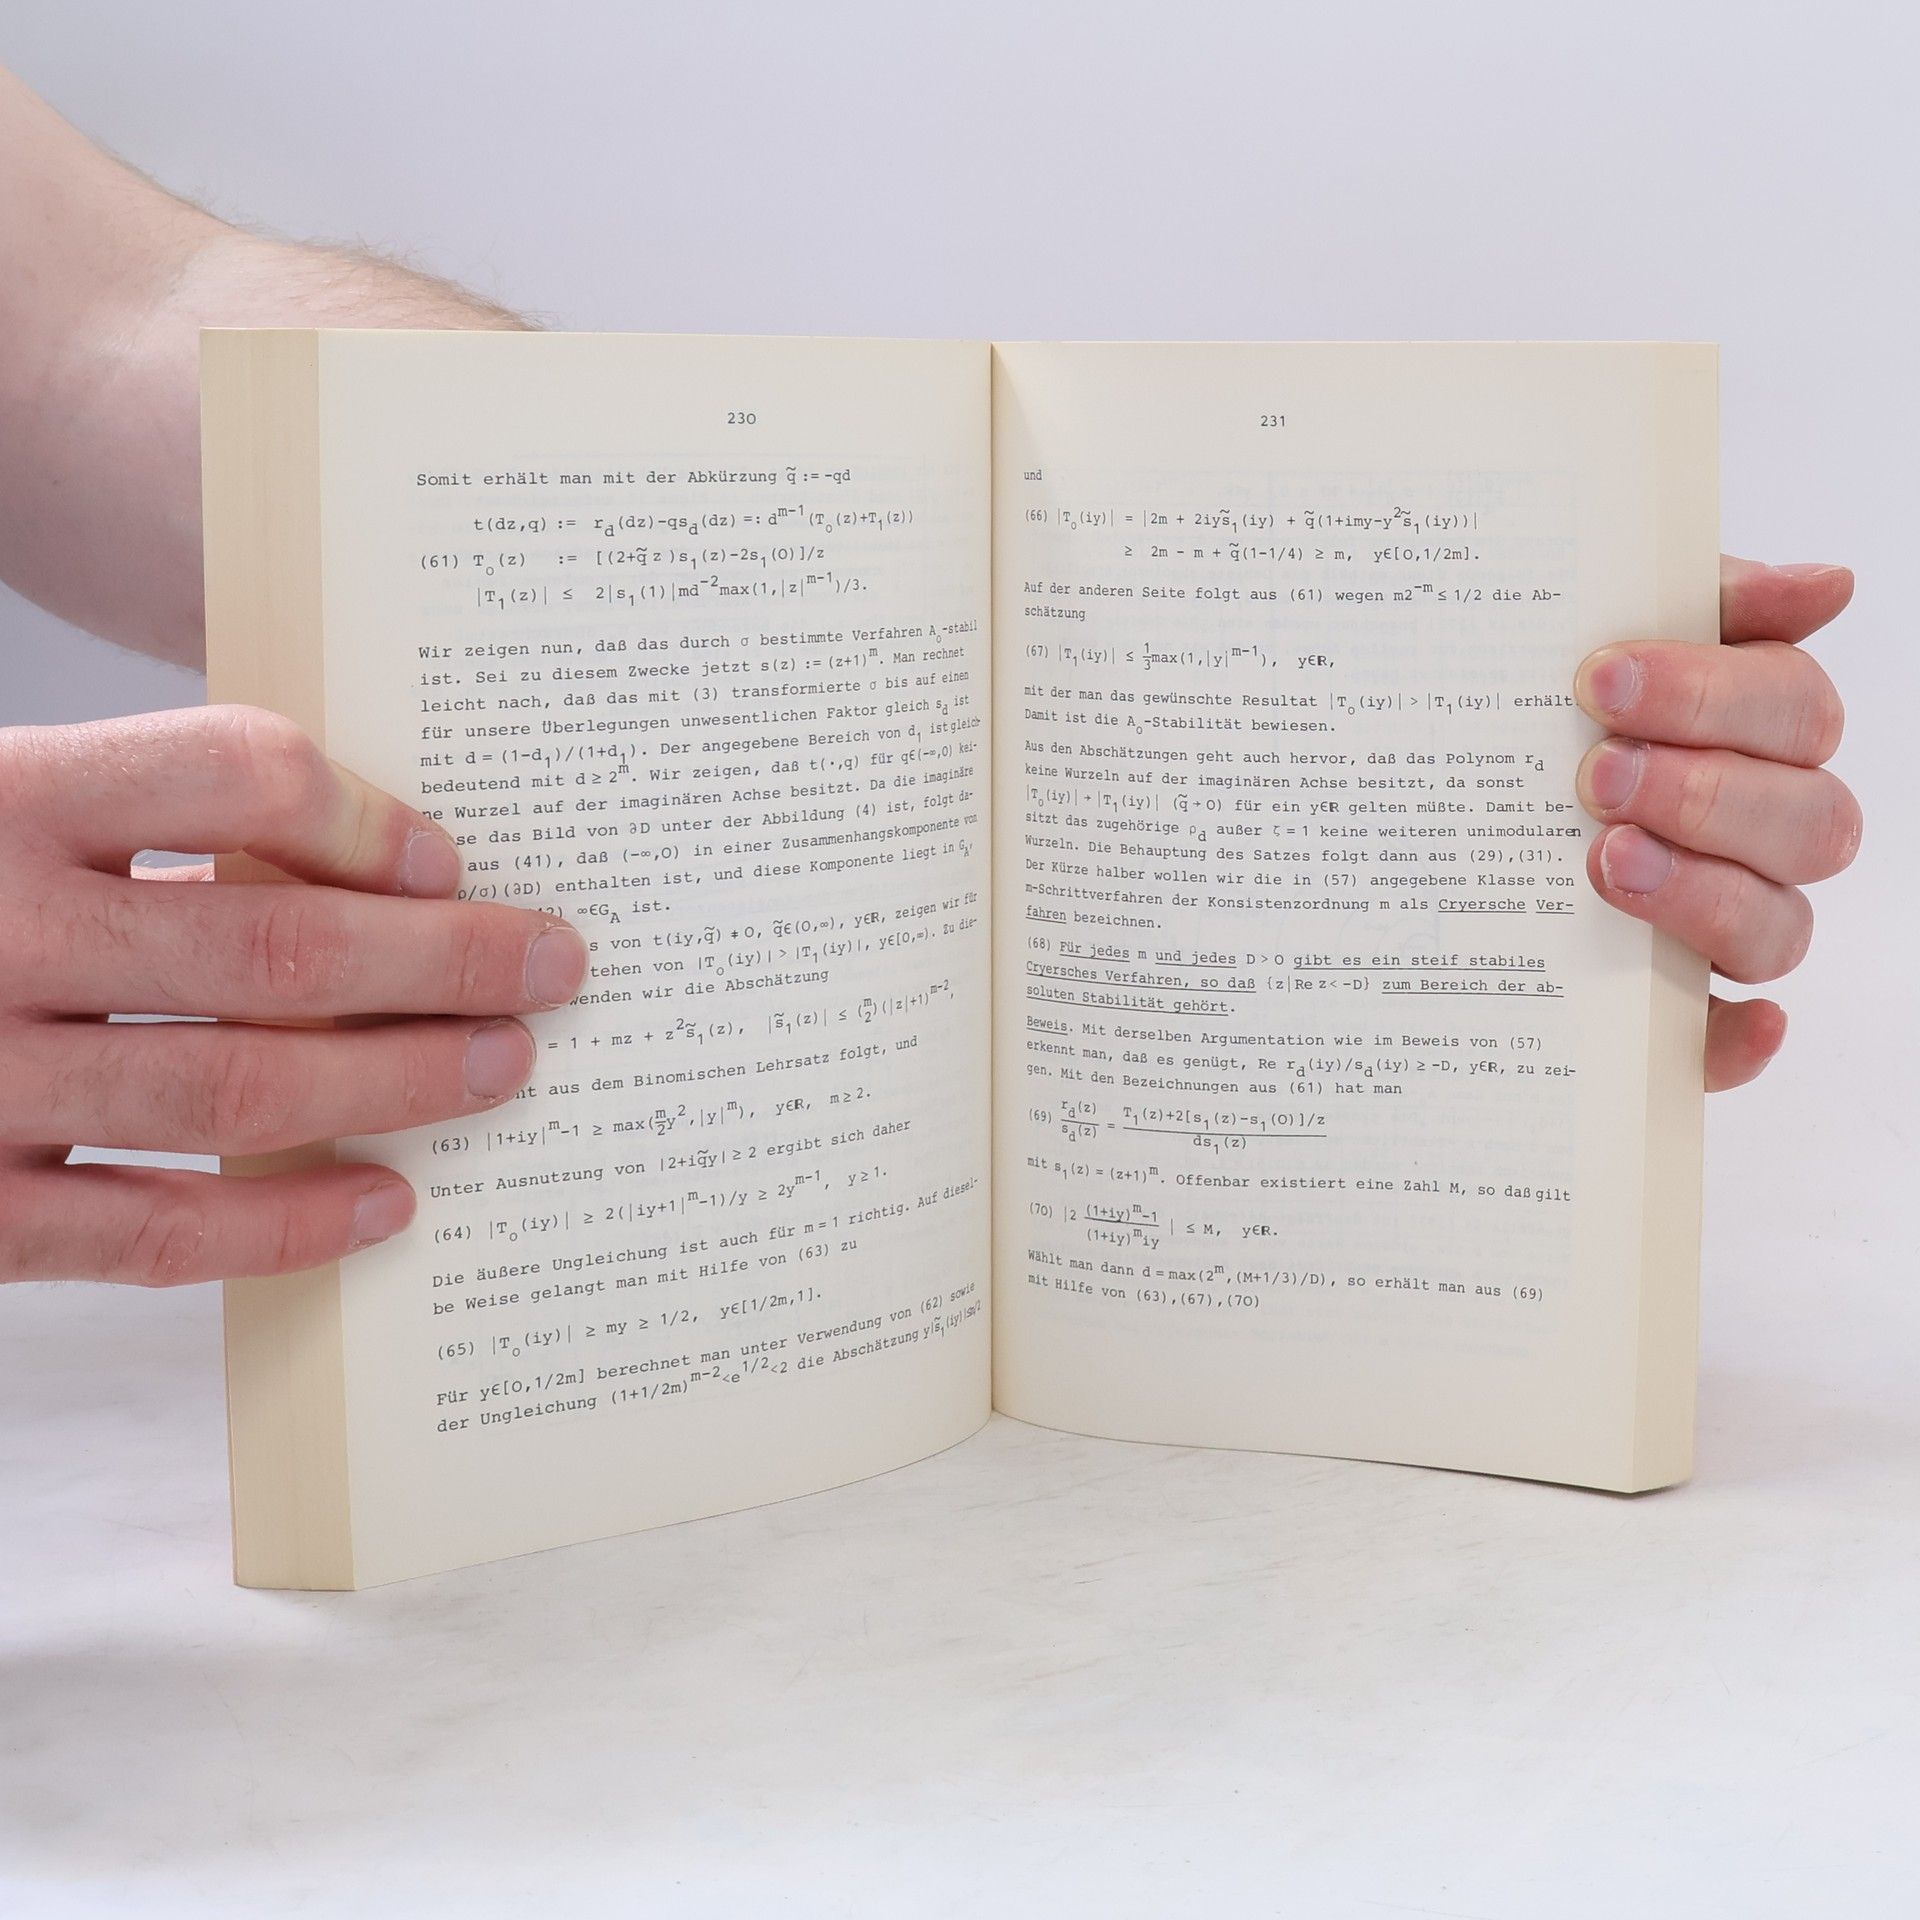 230
Somit erhält man mit der Abkürzung q̃ := -qd
t(dz,q) := r_d(dz)-qs_d(dz) =: d^{m-1}(T_o(z)+T_1(z))
(61) T_o(z) := [(2+q̃ z )s_1(z)-2s_1(0)]/z
|T_1(z)| ≤ 2|s_1(1)|md^{-2}max(1,|z|^{m-1})/3.
Wir zeigen nun, daß das durch σ bestimmte Verfahren A_o-stabil
ist. Sei zu diesem Zwecke jetzt s(z) := (z+1)^m. Man rechnet
leicht nach, daß das mit (3) transformierte σ bis auf einen
für unsere Überlegungen unwesentlichen Faktor gleich s_d ist
mit d = (1-d_1)/(1+d_1). Der angegebene Bereich von d_1 ist gleich-
bedeutend mit d ≥ 2^m. Wir zeigen, daß t(·,q) für q∈(-∞,0) kei-
ne Wurzel auf der imaginären Achse besitzt. Da die imaginäre
se das Bild von ∂D unter der Abbildung (4) ist, folgt da-
aus (41), daß (-∞,0) in einer Zusammenhangskomponente von
ρ/σ)(∂D) enthalten ist, und diese Komponente liegt in G_A,
∞∈G_A ist.
s von t(iy,q̃) ≠ 0, q̃∈(0,∞), y∈ℝ, zeigen wir für
tehen von |T_o(iy)| > |T_1(iy)|, y∈[0,∞). Zu die-
wenden wir die Abschätzung
= 1 + mz + z^2 s̃_1(z), |s̃_1(z)| ≤ (m 2)(|z|+1)^{m-2},
ht aus dem Binomischen Lehrsatz folgt, und
(63) |1+iy|^m-1 ≥ max(m/2 y^2,|y|^m), y∈ℝ, m ≥ 2.
Unter Ausnutzung von |2+iq̃y| ≥ 2 ergibt sich daher
(64) |T_o(iy)| ≥ 2(|iy+1|^m-1)/y ≥ 2y^{m-1}, y ≥ 1.
Die äußere Ungleichung ist auch für m = 1 richtig. Auf diesel-
be Weise gelangt man mit Hilfe von (63) zu
(65) |T_o(iy)| ≥ my ≥ 1/2, y∈[1/2m,1].
Für y∈[0,1/2m] berechnet man unter Verwendung von (62) sowie
der Ungleichung (1+1/2m)^{m-2}<e^{1/2}<2 die Abschätzung y|s̃_1(iy)|≤m/2
231
und
(66) |T_o(iy)| = |2m + 2iys̃_1(iy) + q̃(1+imy-y^2 s̃_1(iy))|
≥ 2m - m + q̃(1-1/4) ≥ m, y∈[0,1/2m].
Auf der anderen Seite folgt aus (61) wegen m2^{-m} ≤ 1/2 die Ab-
schätzung
(67) |T_1(iy)| ≤ 1/3 max(1,|y|^{m-1}), y∈ℝ,
mit der man das gewünschte Resultat |T_o(iy)| > |T_1(iy)| erhält.
Damit ist die A_o-Stabilität bewiesen.
Aus den Abschätzungen geht auch hervor, daß das Polynom r_d
keine Wurzeln auf der imaginären Achse besitzt, da sonst
|T_o(iy)| → |T_1(iy)| (q̃ → 0) für ein y∈ℝ gelten müßte. Damit be-
sitzt das zugehörige ρ_d außer ζ = 1 keine weiteren unimodularen
Wurzeln. Die Behauptung des Satzes folgt dann aus (29),(31).
Der Kürze halber wollen wir die in (57) angegebene Klasse von
m-Schrittverfahren der Konsistenzordnung m als Cryersche Ver-
fahren bezeichnen.
(68) Für jedes m und jedes D > 0 gibt es ein steif stabiles
Cryersches Verfahren, so daß {z|Re z < -D} zum Bereich der ab-
soluten Stabilität gehört.
Beweis. Mit derselben Argumentation wie im Beweis von (57)
erkennt man, daß es genügt, Re r_d(iy)/s_d(iy) ≥ -D, y∈ℝ, zu zei-
gen. Mit den Bezeichnungen aus (61) hat man
(69) r_d(z)/s_d(z) = T_1(z)+2[s_1(z)-s_1(0)]/z / ds_1(z)
mit s_1(z) = (z+1)^m. Offenbar existiert eine Zahl M, so daß gilt
(70) |2 (1+iy)^m-1 / (1+iy)^m iy | ≤ M, y∈ℝ.
Wählt man dann d = max(2^m,(M+1/3)/D), so erhält man aus (69)
mit Hilfe von (63),(67),(70)